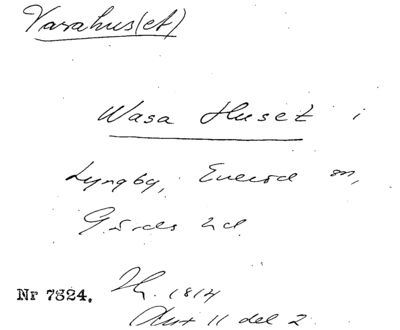 Vasahus(et)
Wasa Huset i
Lyngby, Everöd sn,
Gärds hd
Nr 7824. Hg. 1814
Akt 11 del 2